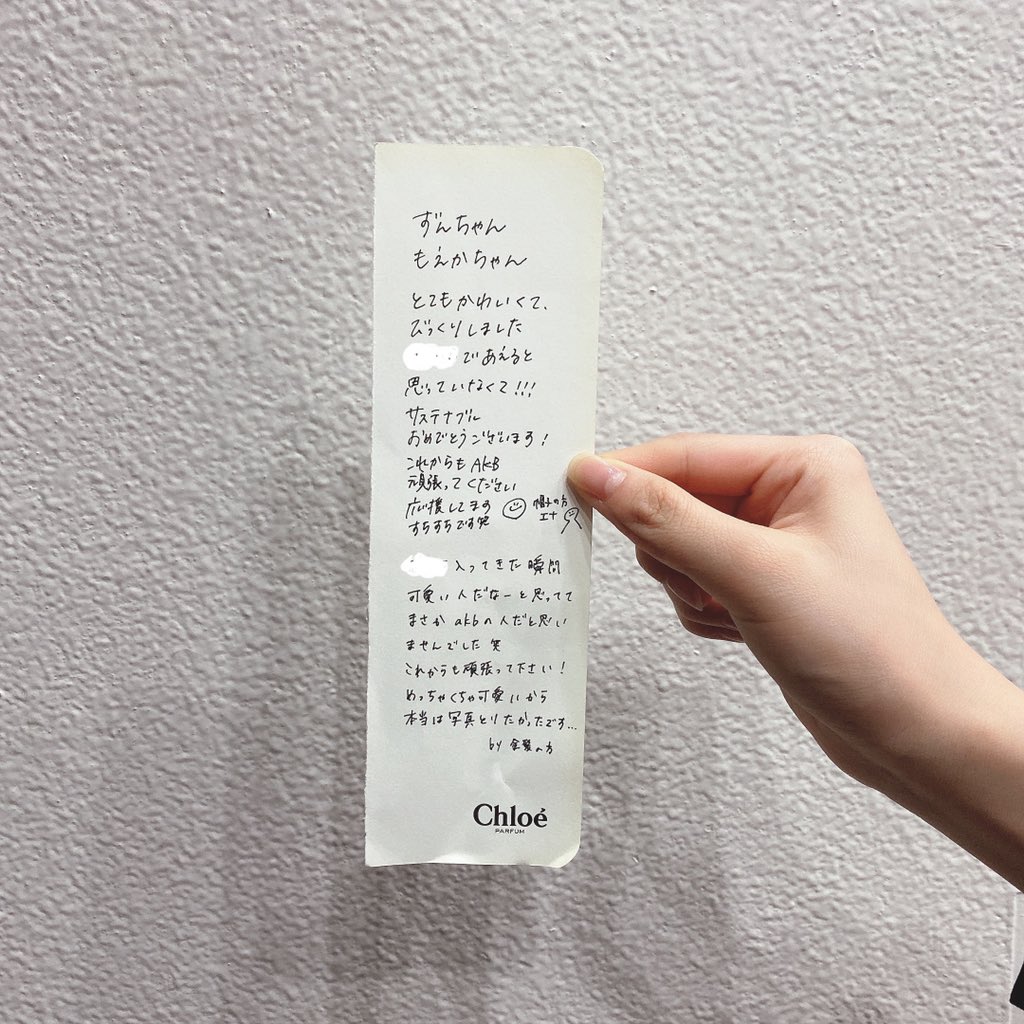 ずんちゃん
もえかちゃん
とてもかわいくて、
びっくりしました
であえると
思っていなくて!!!
サステナブル
おめでとうございます!
これからも AKB
頑張ってください
応援してます
帽子の方
エナ
すちすちです笑
入ってきた瞬間
可愛い人だなーと思ってて
まさか akbの人だと思い
ませんでした 笑
これからも頑張って下さい!
めっちゃくちゃ可愛いから
本当は写真とりたかったです...
by 金髪の方
Chloé
PARFUM